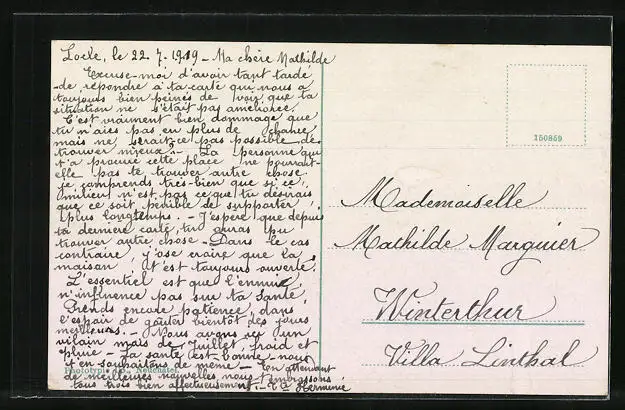 Locle, le 22. 7. 1919 - Ma chère Mathilde
Excuse-moi d'avoir tant tardé
de répondre à ta carte qui nous a
toujours bien peinés de voir que ta
situation ne s'était pas améliorée.
C'est vraiment bien dommage que
tu n'aies pas eu plus de chance,
mais ne serait-ce pas possible de
trouver mieux. - La personne qui
t'a procuré cette place ne pourrait-
elle pas te trouver autre chose
je comprends très-bien que si ce
milieu n'est pas ce que tu désirais
que ce soit pénible de supporter
plus longtemps. - J'espère que depuis
ta dernière carte, tu auras pu
trouver autre chose - Dans le cas
contraire, j'ose croire que la
maison t'est toujours ouverte.
L'essentiel est que l'ennui,
n'influence pas sur ta santé,
Prends encore patience, dans
l'espoir de goûter bientôt des jours
meilleurs. - Nous avons ici un
vilain mois de Juillet, froid et
pluie - La santé est bonne, nous
t'en souhaitons de même - En attendant
de meilleures nouvelles nous t'embrassons
tous trois bien affectueusement - Ta Herminie
Phototypie Co., Neuchâtel
150859
Mademoiselle
Mathilde Marguier
Winterthur
Villa Linthal